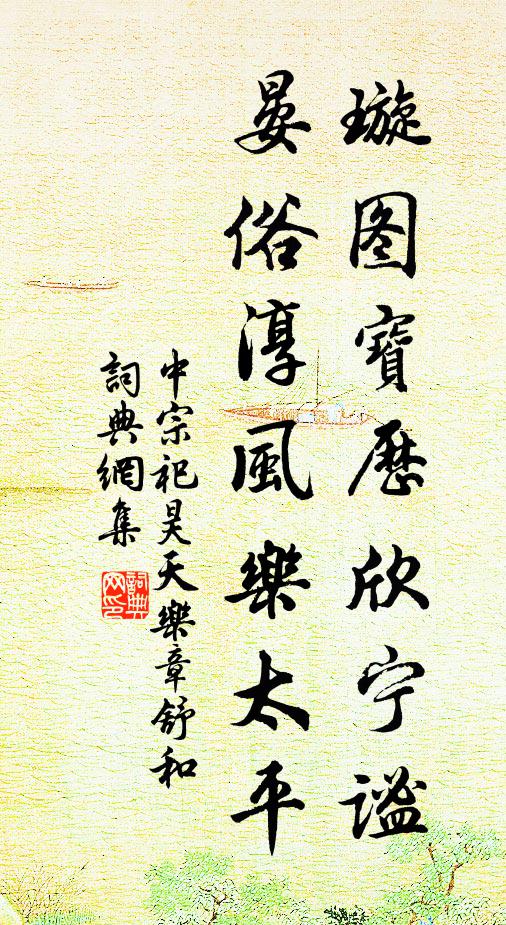 璇图寶歷欣宁謐
晏俗淳風樂太平
中宗祀昊天樂章舒和
詞典網集
詞典
网印